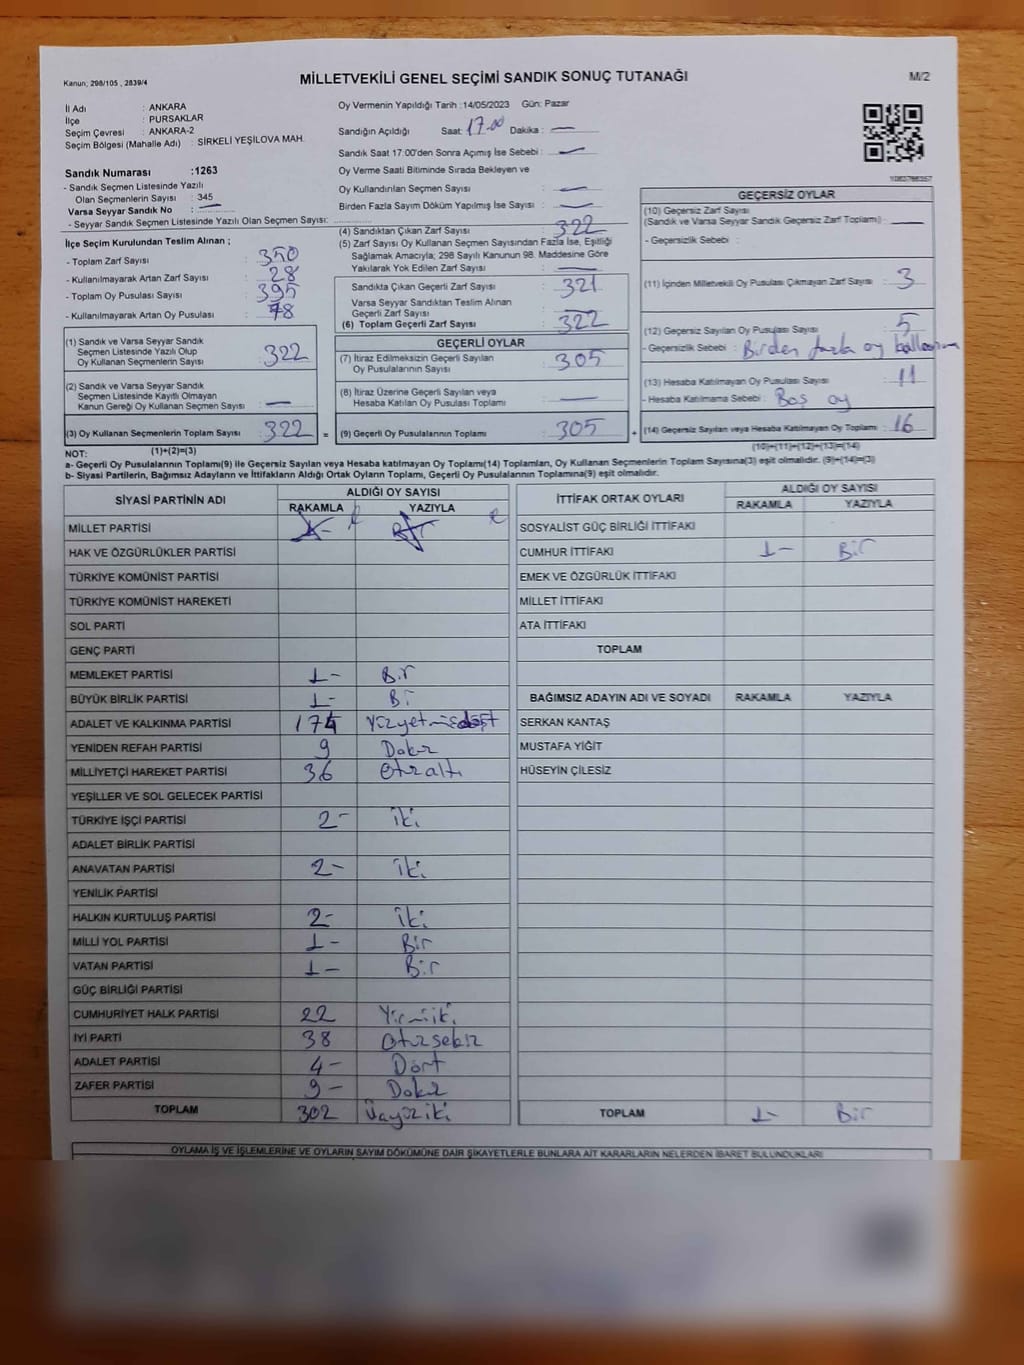 Kanun; 298/105 , 2839/4
MİLLETVEKİLİ GENEL SEÇİMİ SANDIK SONUÇ TUTANAĞI
M/2
İl Adı : ANKARA
İlçe : PURSAKLAR
Seçim Çevresi : ANKARA-2
Seçim Bölgesi (Mahalle Adı) : SİRKELİ YEŞİLOVA MAH.
Sandık Numarası :1263
- Sandık Seçmen Listesinde Yazılı
Olan Seçmenlerin Sayısı : 345
Varsa Seyyar Sandık No : —
- Seyyar Sandık Seçmen Listesinde Yazılı Olan Seçmen Sayısı:
Oy Vermenin Yapıldığı Tarih :14/05/2023 Gün: Pazar
Sandığın Açıldığı Saat: 17.00 Dakika : —
Sandık Saat 17:00'den Sonra Açımış İse Sebebi : —
Oy Verme Saati Bitiminde Sırada Bekleyen ve
Oy Kullandırılan Seçmen Sayısı : —
Birden Fazla Sayım Döküm Yapılmış İse Sayısı : —
İlçe Seçim Kurulundan Teslim Alınan ;
- Toplam Zarf Sayısı : 350
- Kullanılmayarak Artan Zarf Sayısı : 28
- Toplam Oy Pusulası Sayısı : 395
- Kullanılmayarak Artan Oy Pusulası : 78
(1) Sandık ve Varsa Seyyar Sandık
Seçmen Listesinde Yazılı Olup
Oy Kullanan Seçmenlerin Sayısı : 322
(2) Sandık ve Varsa Seyyar Sandık
Seçmen Listesinde Kayıtlı Olmayan
Kanun Gereği Oy Kullanan Seçmen Sayısı : —
(3) Oy Kullanan Seçmenlerin Toplam Sayısı : 322 =
(4) Sandıktan Çıkan Zarf Sayısı : 322
(5) Zarf Sayısı Oy Kullanan Seçmen Sayısından Fazla İse, Eşitliği
Sağlamak Amacıyla; 298 Sayılı Kanunun 98. Maddesine Göre
Yakılarak Yok Edilen Zarf Sayısı : —
Sandıkta Çıkan Geçerli Zarf Sayısı : 321
Varsa Seyyar Sandıktan Teslim Alınan
Geçerli Zarf Sayısı :
(6) Toplam Geçerli Zarf Sayısı : 322
GEÇERLİ OYLAR
(7) İtiraz Edilmeksizin Geçerli Sayılan
Oy Pusulalarının Sayısı : 305
(8) İtiraz Üzerine Geçerli Sayılan veya
Hesaba Katılan Oy Pusulası Toplamı : —
(9) Geçerli Oy Pusulalarının Toplamı : 305 +
GEÇERSİZ OYLAR
(10) Geçersiz Zarf Sayısı
(Sandık ve Varsa Seyyar Sandık Geçersiz Zarf Toplamı) : —
- Geçersizlik Sebebi :
(11) İçinden Milletvekili Oy Pusulası Çıkmayan Zarf Sayısı : 3
(12) Geçersiz Sayılan Oy Pusulası Sayısı : 5
- Geçersizlik Sebebi : Birden fazla oy
(13) Hesaba Katılmayan Oy Pusulası Sayısı : 11
- Hesaba Katılmama Sebebi : Boş oy
(14) Geçersiz Sayılan veya Hesaba Katılmayan Oy Toplamı : 16
NOT: (1)+(2)=(3)
(10)+(11)+(12)+(13)=(14)
a- Geçerli Oy Pusulalarının Toplamı(9) ile Geçersiz Sayılan veya Hesaba katılmayan Oy Toplamı(14) Toplamları, Oy Kullanan Seçmenlerin Toplam Sayısına(3) eşit olmalıdır. (9)+(14)=(3)
b- Siyasi Partilerin, Bağımsız Adayların ve İttifakların Aldığı Ortak Oyların Toplamı, Geçerli Oy Pusulalarının Toplamına(9) eşit olmalıdır.
SİYASİ PARTİNİN ADI ALDIĞI OY SAYISI
RAKAMLA YAZIYLA
MİLLET PARTİSİ
HAK VE ÖZGÜRLÜKLER PARTİSİ
TÜRKİYE KOMÜNİST PARTİSİ
TÜRKİYE KOMÜNİST HAREKETİ
SOL PARTİ
GENÇ PARTİ
MEMLEKET PARTİSİ 1- Bir
BÜYÜK BİRLİK PARTİSİ 1- Bi
ADALET VE KALKINMA PARTİSİ 174 Yüzyetmişdört
YENİDEN REFAH PARTİSİ 9 Dokuz
MİLLİYETÇİ HAREKET PARTİSİ 36 Otuzaltı
YEŞİLLER VE SOL GELECEK PARTİSİ
TÜRKİYE İŞÇİ PARTİSİ 2- iki
ADALET BİRLİK PARTİSİ
ANAVATAN PARTİSİ 2- iki
YENİLİK PARTİSİ
HALKIN KURTULUŞ PARTİSİ 2- iki
MİLLİ YOL PARTİSİ 1- Bir
VATAN PARTİSİ 1- Bir
GÜÇ BİRLİĞİ PARTİSİ
CUMHURİYET HALK PARTİSİ 22 Yirmiiki
İYİ PARTİ 38 Otuzsekiz
ADALET PARTİSİ 4- Dört
ZAFER PARTİSİ 9- Dokuz
TOPLAM 302 Üçyüziki
İTTİFAK ORTAK OYLARI ALDIĞI OY SAYISI
RAKAMLA YAZIYLA
SOSYALİST GÜÇ BİRLİĞİ İTTİFAKI
CUMHUR İTTİFAKI 1- Bir
EMEK VE ÖZGÜRLÜK İTTİFAKI
MİLLET İTTİFAKI
ATA İTTİFAKI
TOPLAM
BAĞIMSIZ ADAYIN ADI VE SOYADI RAKAMLA YAZIYLA
SERKAN KANTAŞ
MUSTAFA YİĞİT
HÜSEYİN ÇİLESİZ
TOPLAM 1- Bir
OYLAMA İŞ VE İŞLEMLERİNE VE OYLARIN SAYIM DÖKÜMÜNE DAİR ŞİKAYETLERLE BUNLARA AİT KARARLARIN NELERDEN İBARET BULUNDUKLARI